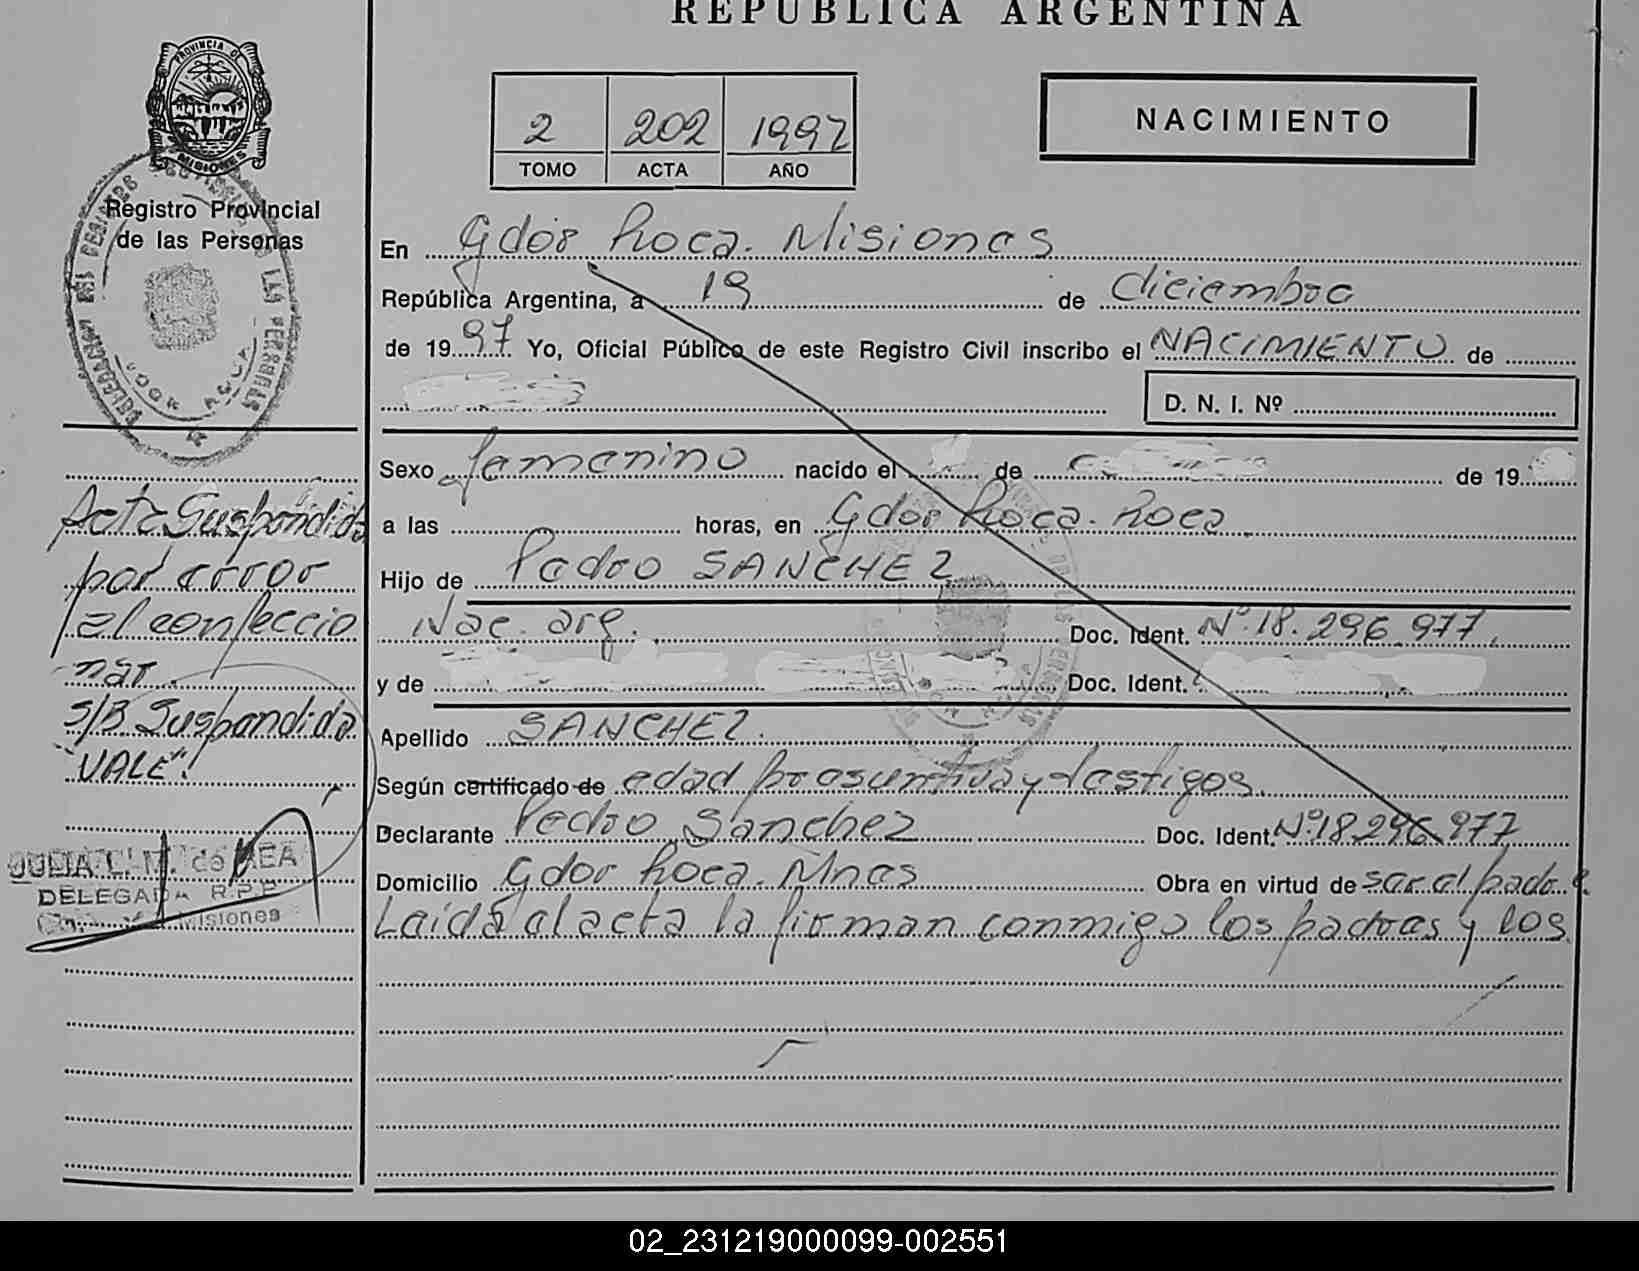 REPUBLICA ARGENTINA
PROVINCIA DE
MISIONES
Registro Provincial
de las Personas
2 202 1997
TOMO ACTA AÑO
NACIMIENTO
En Gdor Roca. Misiones
República Argentina, a 19 de diciembre
de 1997 Yo, Oficial Público de este Registro Civil inscribo el NACIMIENTO de
D. N. I. Nº
Sexo femenino nacido el de de 19
a las horas, en Gdor Roca. Roca
Hijo de Pedro SANCHEZ
Nac. arg. Doc. Ident. Nº 18.296.977
y de Doc. Ident.
Apellido SANCHEZ.
Según certificado de edad presuntiva y testigos.
Declarante Pedro Sanchez Doc. Ident. Nº 18296977
Domicilio Gdor Roca. Mnes Obra en virtud de ser el padre.
Leída el acta la firman conmigo los padres y los
Acta Suspendida
por error
al confeccio
nar.
S/B Suspendida
"VALE"!
JULIA C. M. de
DELEGADA R.P.P
Misiones
02_231219000099-002551